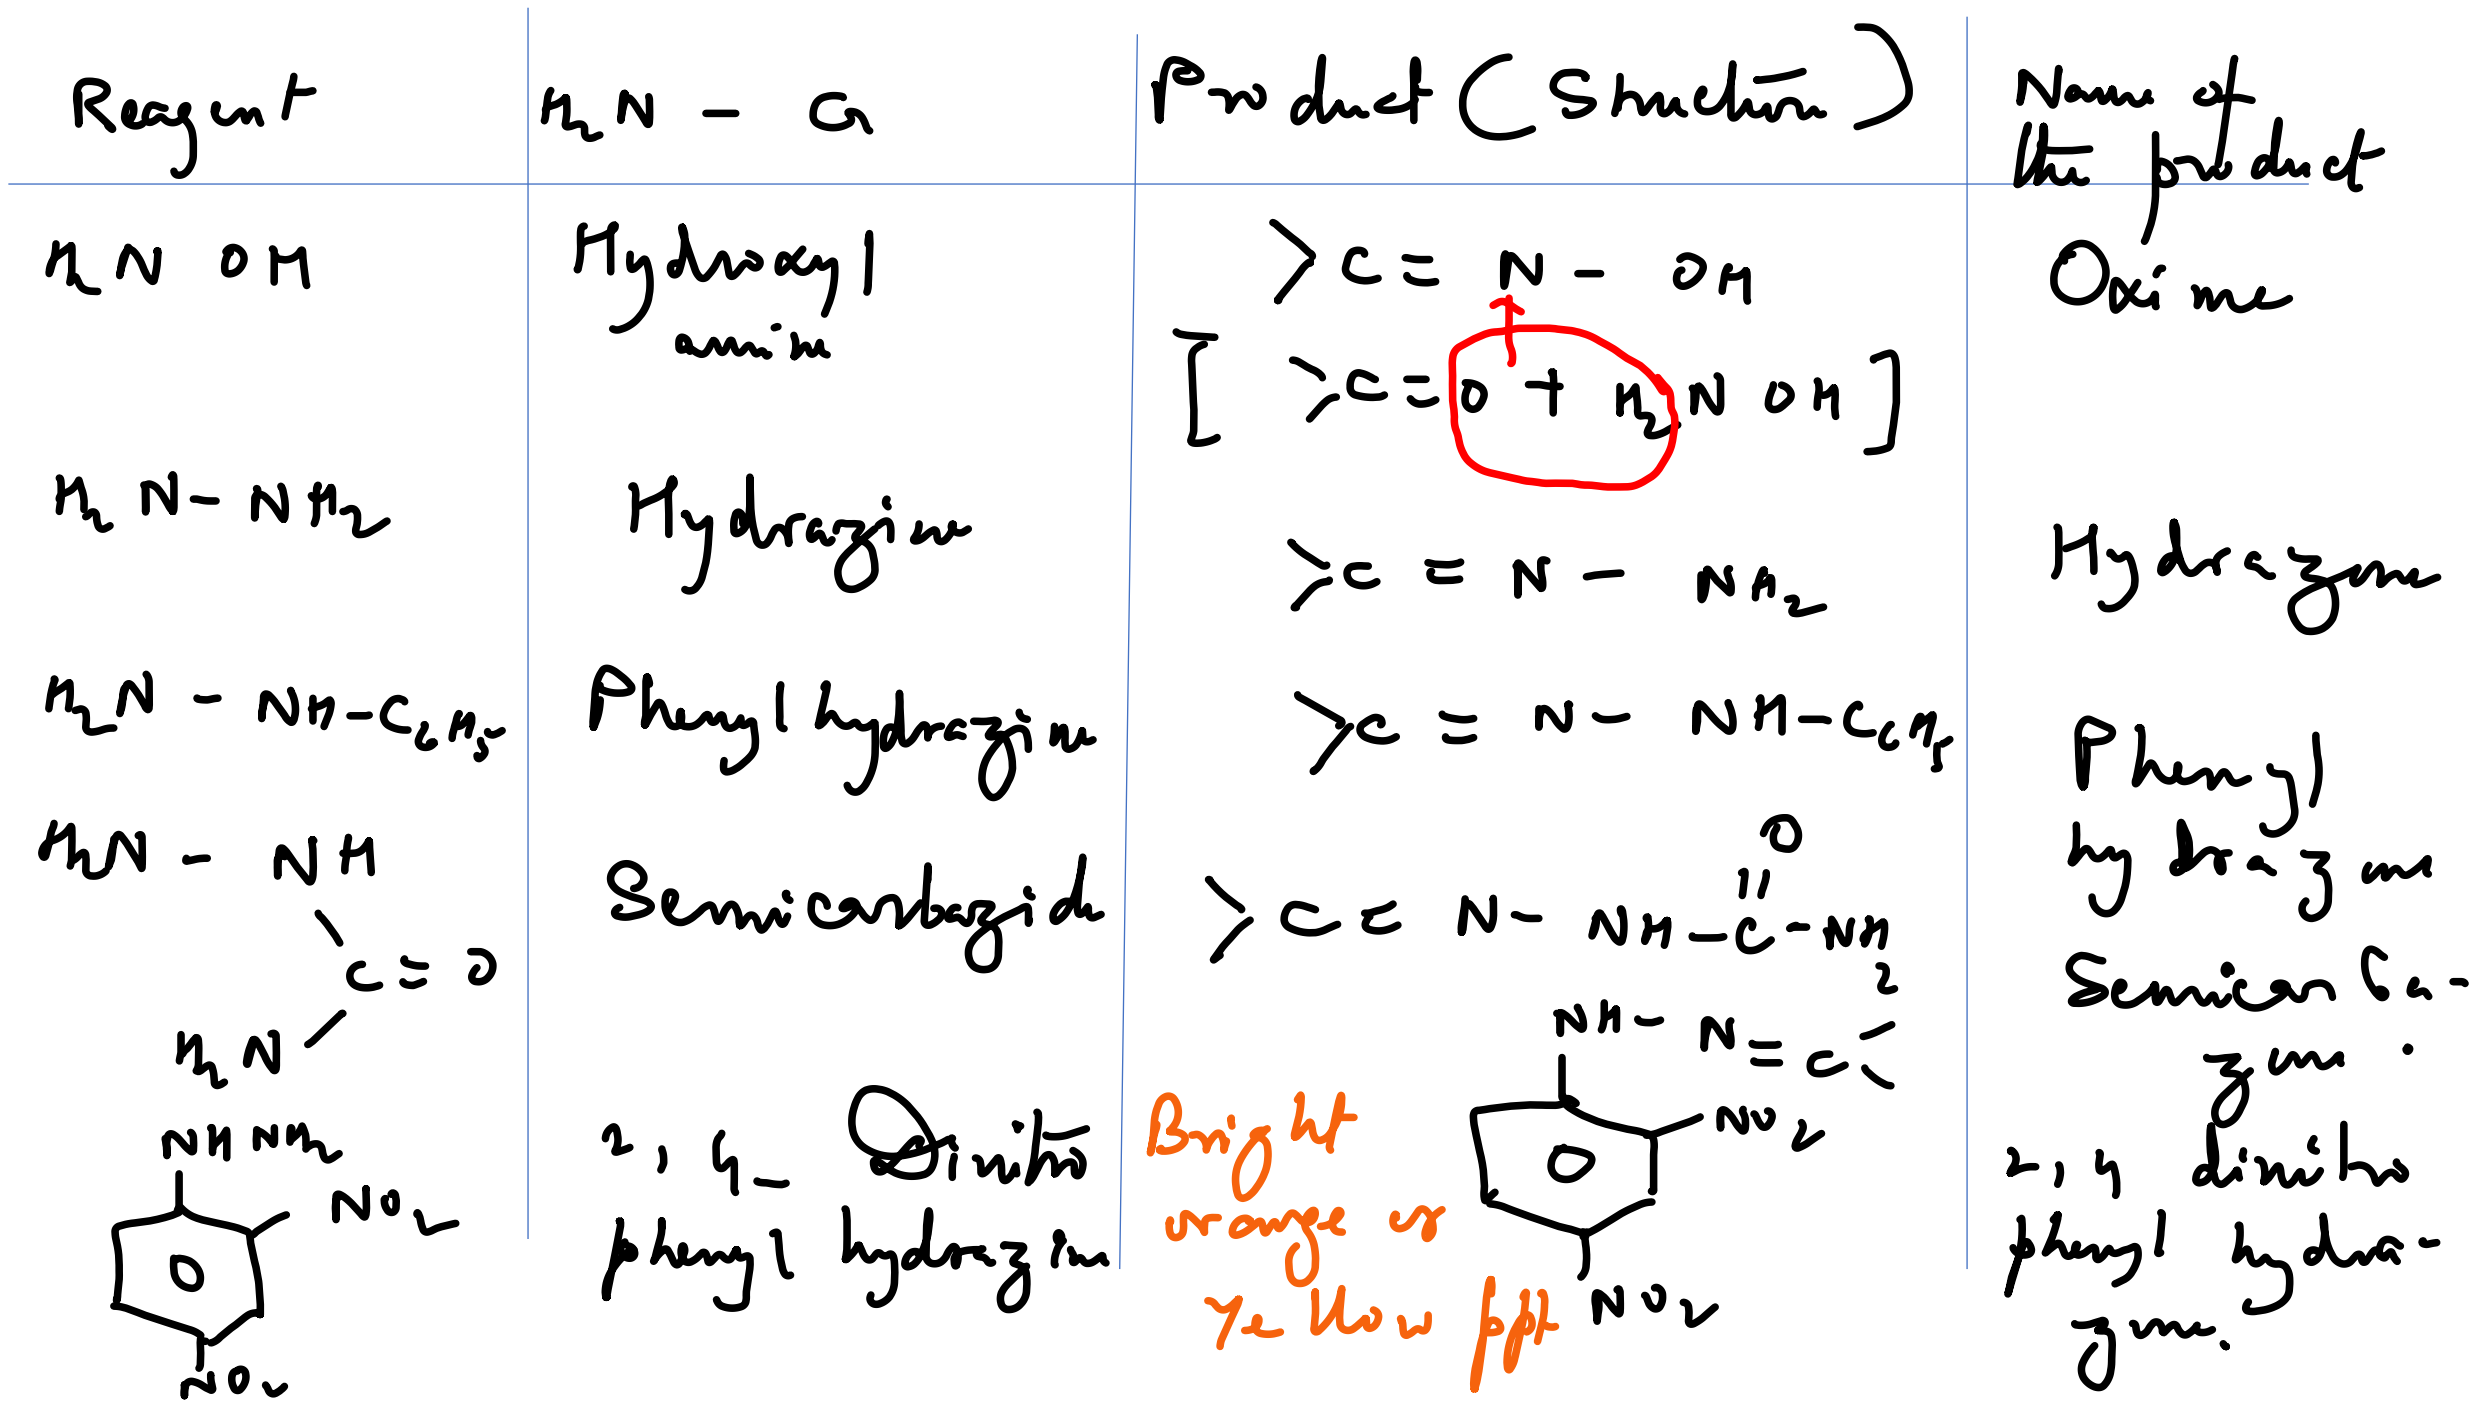 Reagent
H₂N – G
Product (Structure)
Name of
the product
H₂N OH
Hydroxyl
amine
>C = N – OH
[ >C = O + H₂N OH ]
Oxime
H₂N – NH₂
Hydrazine
>C = N – NH₂
Hydrazone
H₂N – NH – C₆H₅
Phenyl hydrazine
>C = N – NH – C₆H₅
Phenyl
hydrazone
H₂N – NH
C = O
H₂N
Semicarbazide
O
||
>C = N – NH – C – NH
2
Semicarba-
zone .
NH NH₂
NO₂
NO₂
2, 4 – Dinitro
phenyl hydrazine
NH – N = C<
NO₂
NO₂
Bright
orange or
yellow ppt
2, 4 dinitro
phenyl hydra-
zone.